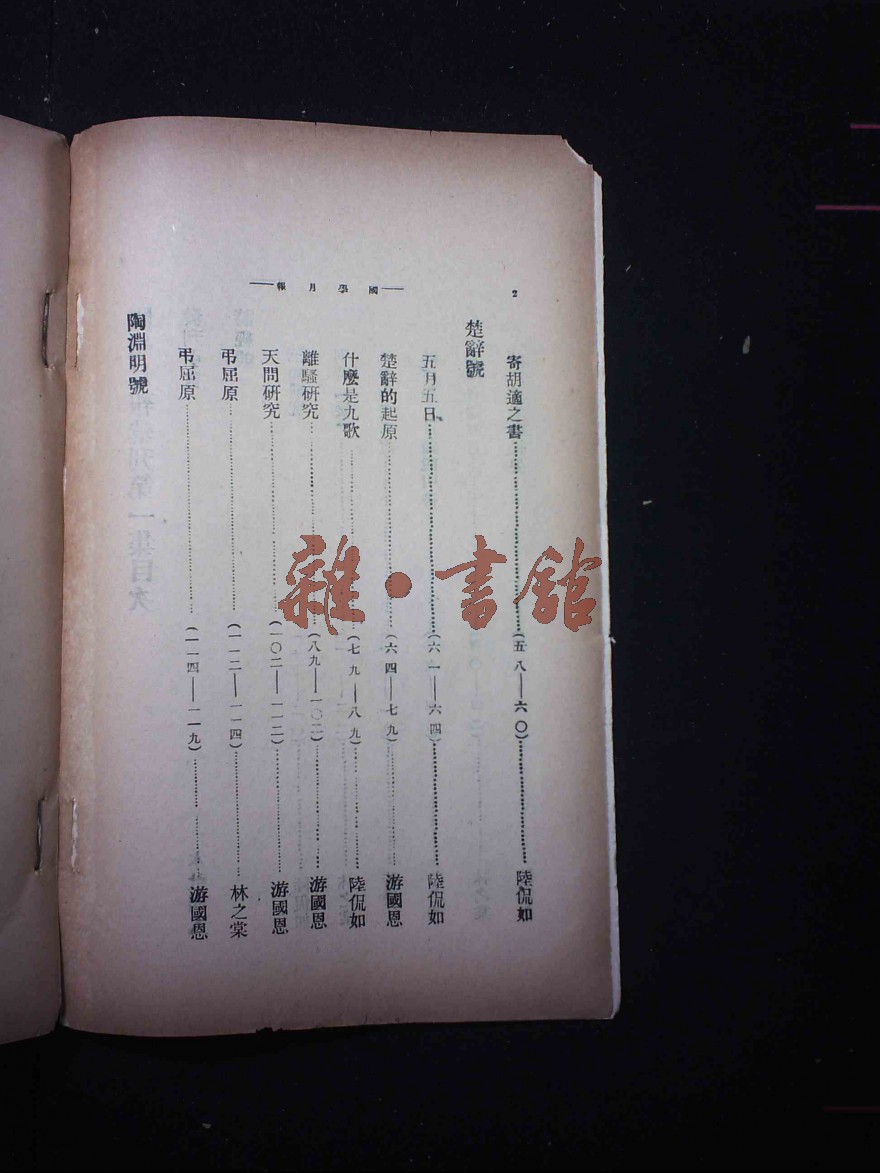 2
——國學月報——
寄胡適之書………………(五八——六〇)………………陸侃如
楚辭號
五月五日………………(六一——六四)………………陸侃如
楚辭的起原………………(六四——七九)………………游國恩
什麼是九歌………………(七九——八九)………………陸侃如
離騷研究………………(八九——一〇二)………………游國恩
天問研究………………(一〇二——一一二)………………游國恩
弔屈原………………(一一二——一一四)………………林之棠
弔屈原………………(一一四——一一九)………………游國恩
陶淵明號
雜·書館